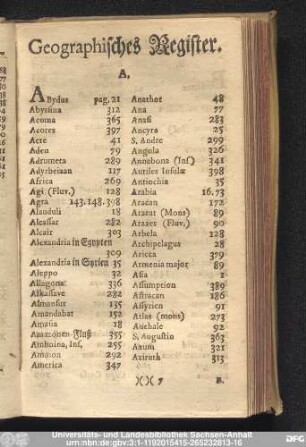 Geographisches Register.
A.
ABydus pag. 21
Abyssina 312
Acoma 365
Acores 397
Acre 41
Aden 79
Adrumeta 289
Adyrbeizan 117
Africa 269
Agi (Fluv.) 128
Agra 143. 148. 398
Alauduli 18
Aleassar 282
Alcair 303
Alexandria in Egypten
309
Alexandria in Syrien 35
Aleppo 32
Allagona 336
Alkaisave 282
Almansur 135
Amandabat 152
Amasia 18
Amazonen-Fluß 355
Amboina, Ins, 255
Amazon 292
America 347
Anathot 48
Ana 77
Anafi 283
Ancyra 25
S. Andre 299
Angola 326
Annobona (Ins) 341
Antilles Insulæ 398
Antiochia 35
Arabia 16. 73
Aracan 172
Ararat (Mons) 89
Araxes (Fluv.) 90
Arbela 128
Archipelagus 28
Aricca 379
Armenia major 89
Asia 1
Assumption 389
Astracan 186
Assyrien 91
Atlas (mons) 273
Avehale 92
S. Augustin 363
Axum 321
Aziruth 313
XX 7
B.
Universitäts- und Landesbibliothek Sachsen-Anhalt
urn:nbn:de:gbv:3:1-1192015415-265232813-16